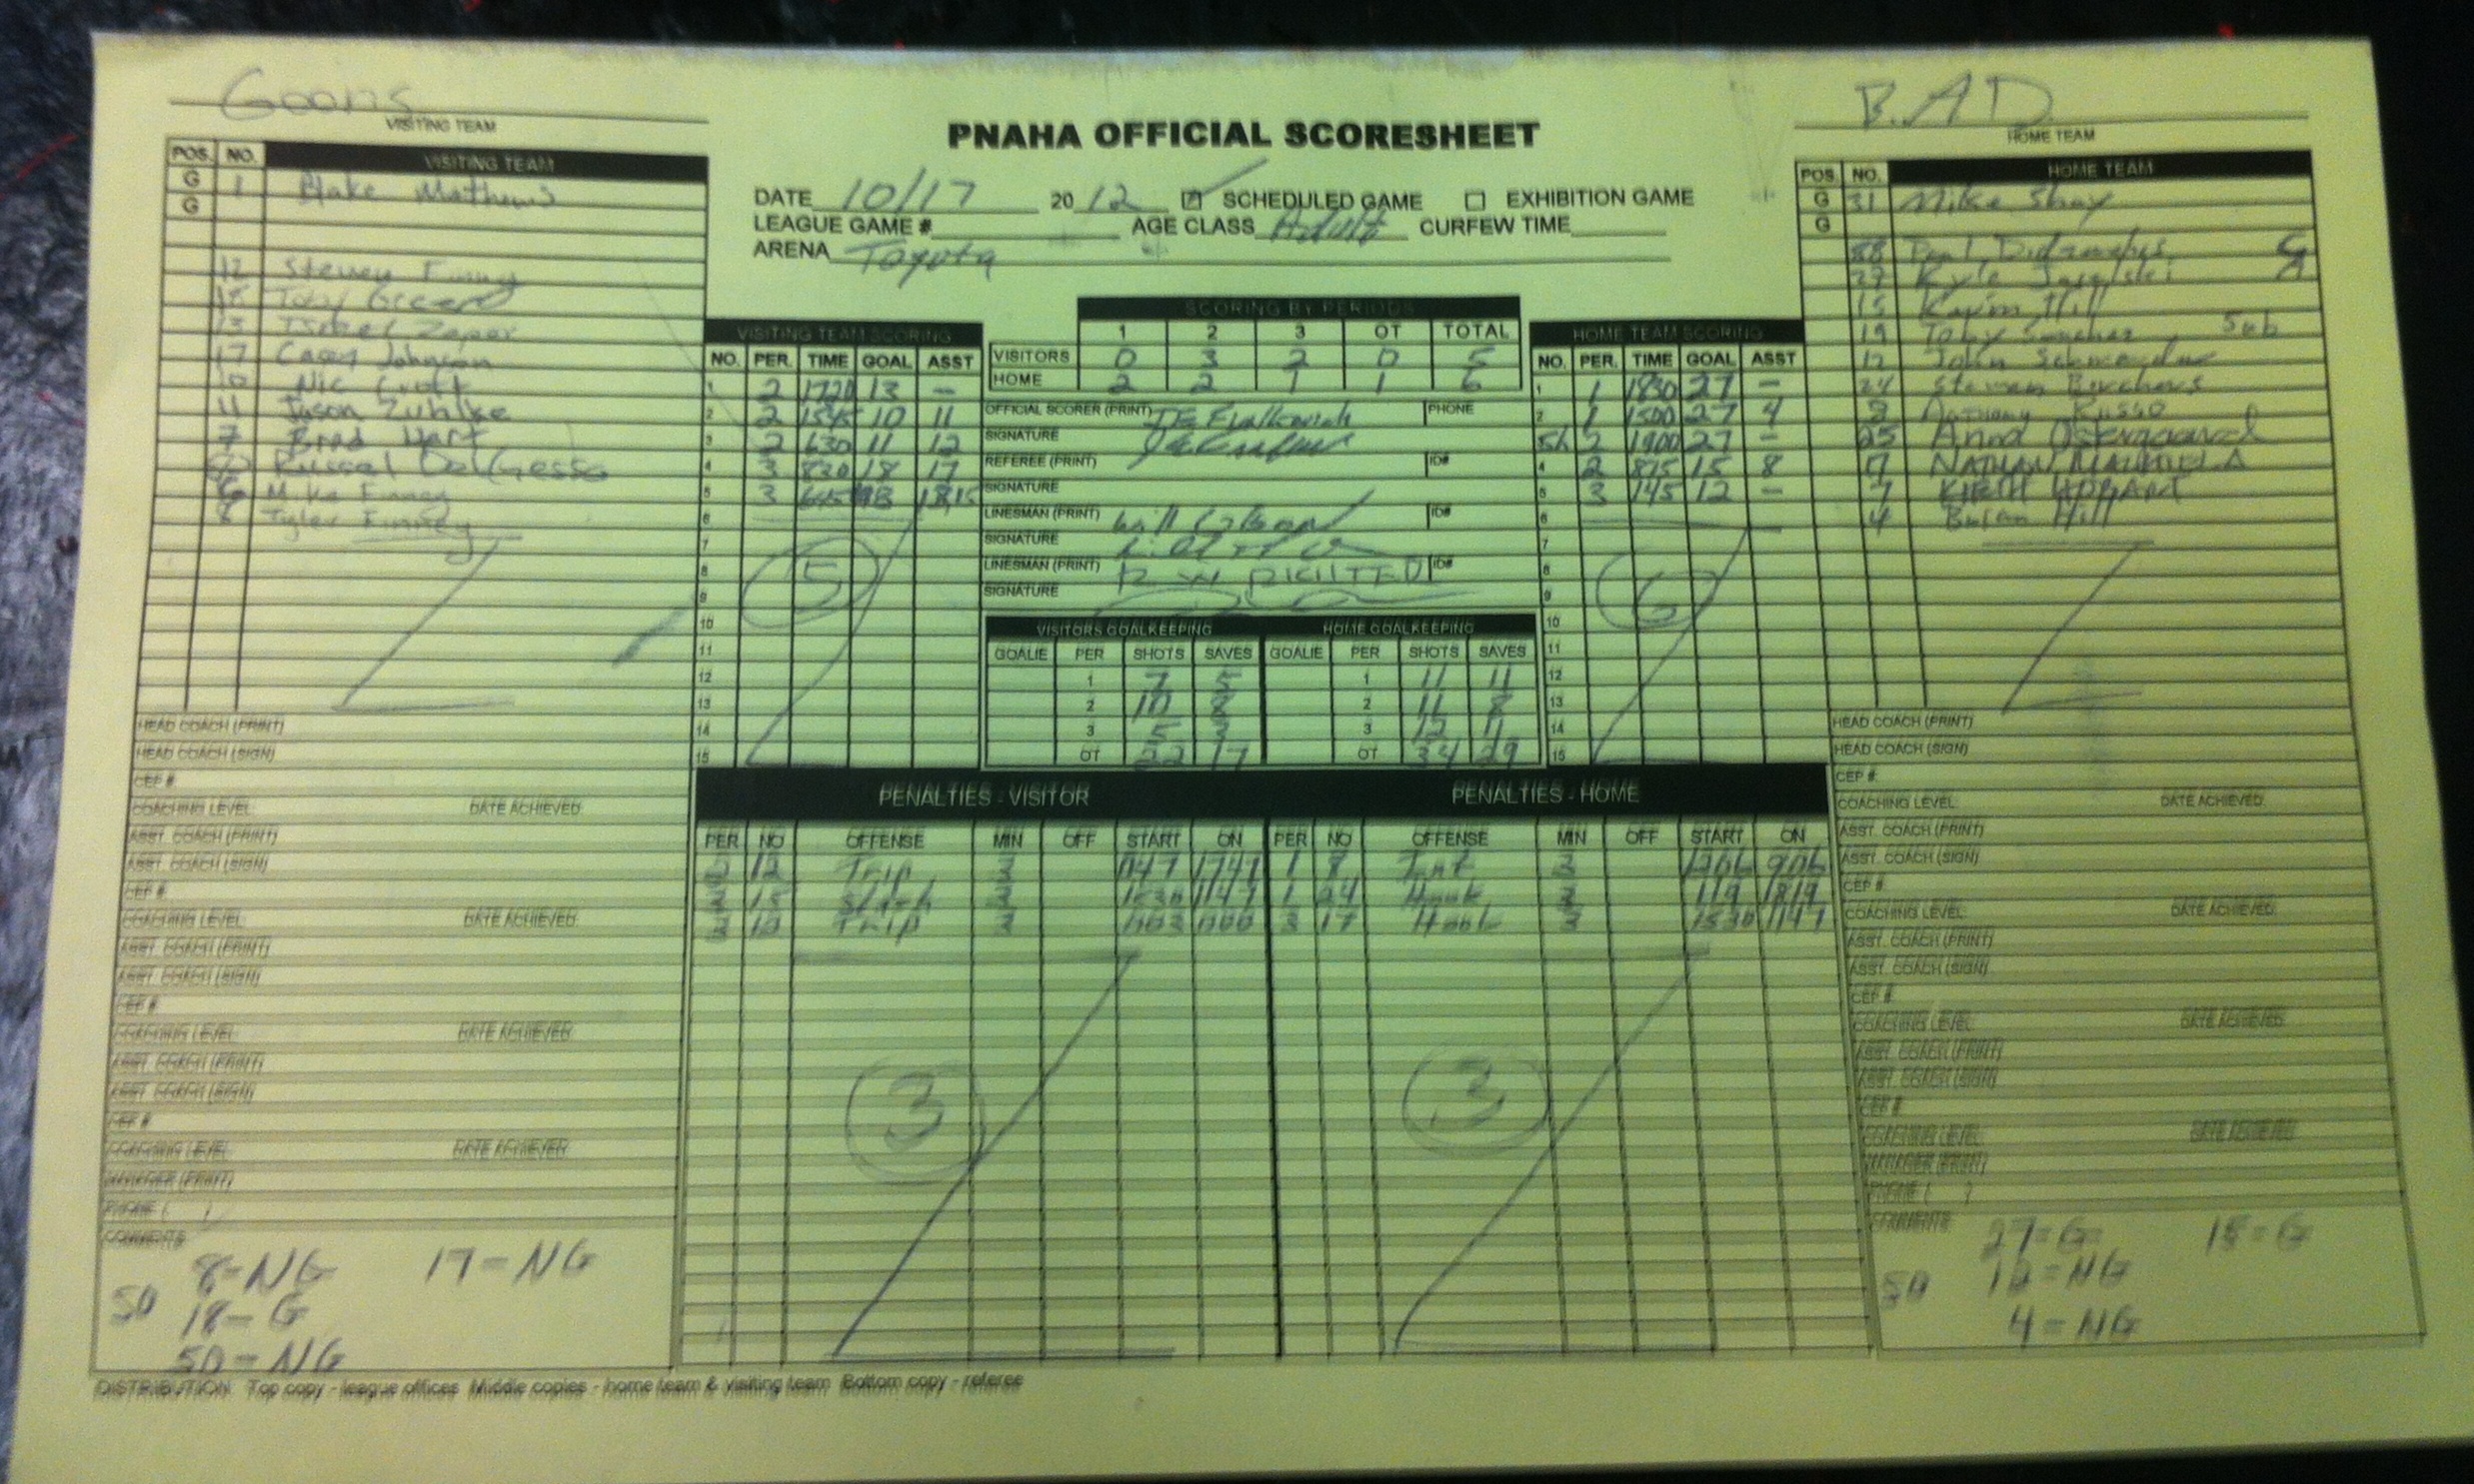 Goons
VISITING TEAM
B.A.D.
HOME TEAM
PNAHA OFFICIAL SCORESHEET
DATE 10/17 2012 SCHEDULED GAME EXHIBITION GAME
LEAGUE GAME # AGE CLASS Adult CURFEW TIME
ARENA Toyota
POS. NO. VISITING TEAM
G 1 Blake Mathews
G
12 Steven Finny
18
13
17 Casey Johnson
10 Nic
11 Jason Zuhlke
7 Brad Hart
Russel DalGesso
Mike Finney
8 Tyler Finney
HEAD COACH (PRINT)
HEAD COACH (SIGN)
CEP #
COACHING LEVEL DATE ACHIEVED
ASST. COACH (PRINT)
ASST. COACH (SIGN)
CEP #
COACHING LEVEL DATE ACHIEVED
ASST. COACH (PRINT)
ASST. COACH (SIGN)
CEP #
COACHING LEVEL DATE ACHIEVED
ASST. COACH (PRINT)
ASST. COACH (SIGN)
CEP #
COACHING LEVEL DATE ACHIEVED
MANAGER (PRINT)
PHONE ( )
COMMENTS
8-NG 17-NG
SO 18-G
50-NG
VISITING TEAM SCORING
NO. PER. TIME GOAL ASST
1 2 1720 13 -
2 2 1545 10 11
3 2 630 11 12
4 3 820 18 17
5 3
6
7
8
9
10
11
12
13
14
15
5
SCORING BY PERIODS
1 2 3 OT TOTAL
VISITORS 0 3 2 0 5
HOME 2 2 1 1 6
OFFICIAL SCORER (PRINT) PHONE
SIGNATURE
REFEREE (PRINT) ID#
SIGNATURE
LINESMAN (PRINT) Will ID#
SIGNATURE
LINESMAN (PRINT) ID#
SIGNATURE
VISITORS GOALKEEPING HOME GOALKEEPING
GOALIE PER SHOTS SAVES GOALIE PER SHOTS SAVES
1 7 5 1 11 11
2 10 8 2 11
3 5 3 12 11
OT 22 17 OT 34 29
HOME TEAM SCORING
NO. PER. TIME GOAL ASST
1 1 1830 27 -
2 1 1500 27 4
sh 2 1900 27 -
4 2 815 15 8
5 3 145 12 -
6
7
8
9
10
11
12
13
14
15
6
POS. NO. HOME TEAM
G 31 Mike Shay
G
88 Paul C
27 Kyle A
15 Kevin Hill
19 Toby Sub
12 John
24 Steven Borchers
8 Anthony Russo
25 Anna Ostergaard
17 NATHAN
7 KEITH
4 Hill
HEAD COACH (PRINT)
HEAD COACH (SIGN)
CEP #
COACHING LEVEL DATE ACHIEVED
ASST. COACH (PRINT)
ASST. COACH (SIGN)
CEP #
COACHING LEVEL DATE ACHIEVED
ASST. COACH (PRINT)
ASST. COACH (SIGN)
CEP #
COACHING LEVEL DATE ACHIEVED
ASST. COACH (PRINT)
ASST. COACH (SIGN)
CEP #
COACHING LEVEL DATE ACHIEVED
MANAGER (PRINT)
PHONE ( )
COMMENTS
27=G 15=G
SO 12=NG
4=NG
PENALTIES - VISITOR PENALTIES - HOME
PER NO OFFENSE MIN OFF START ON PER NO OFFENSE MIN OFF START ON
2 12 Trip 2 1747 1 8 2 906
Slash 1530 1147 1 24 Hook 2 119 1819
12 Trip 2 3 17 Hook 2 1530 1147
3
3
DISTRIBUTION: Top copy - league offices Middle copies - home team & visiting team Bottom copy - referee